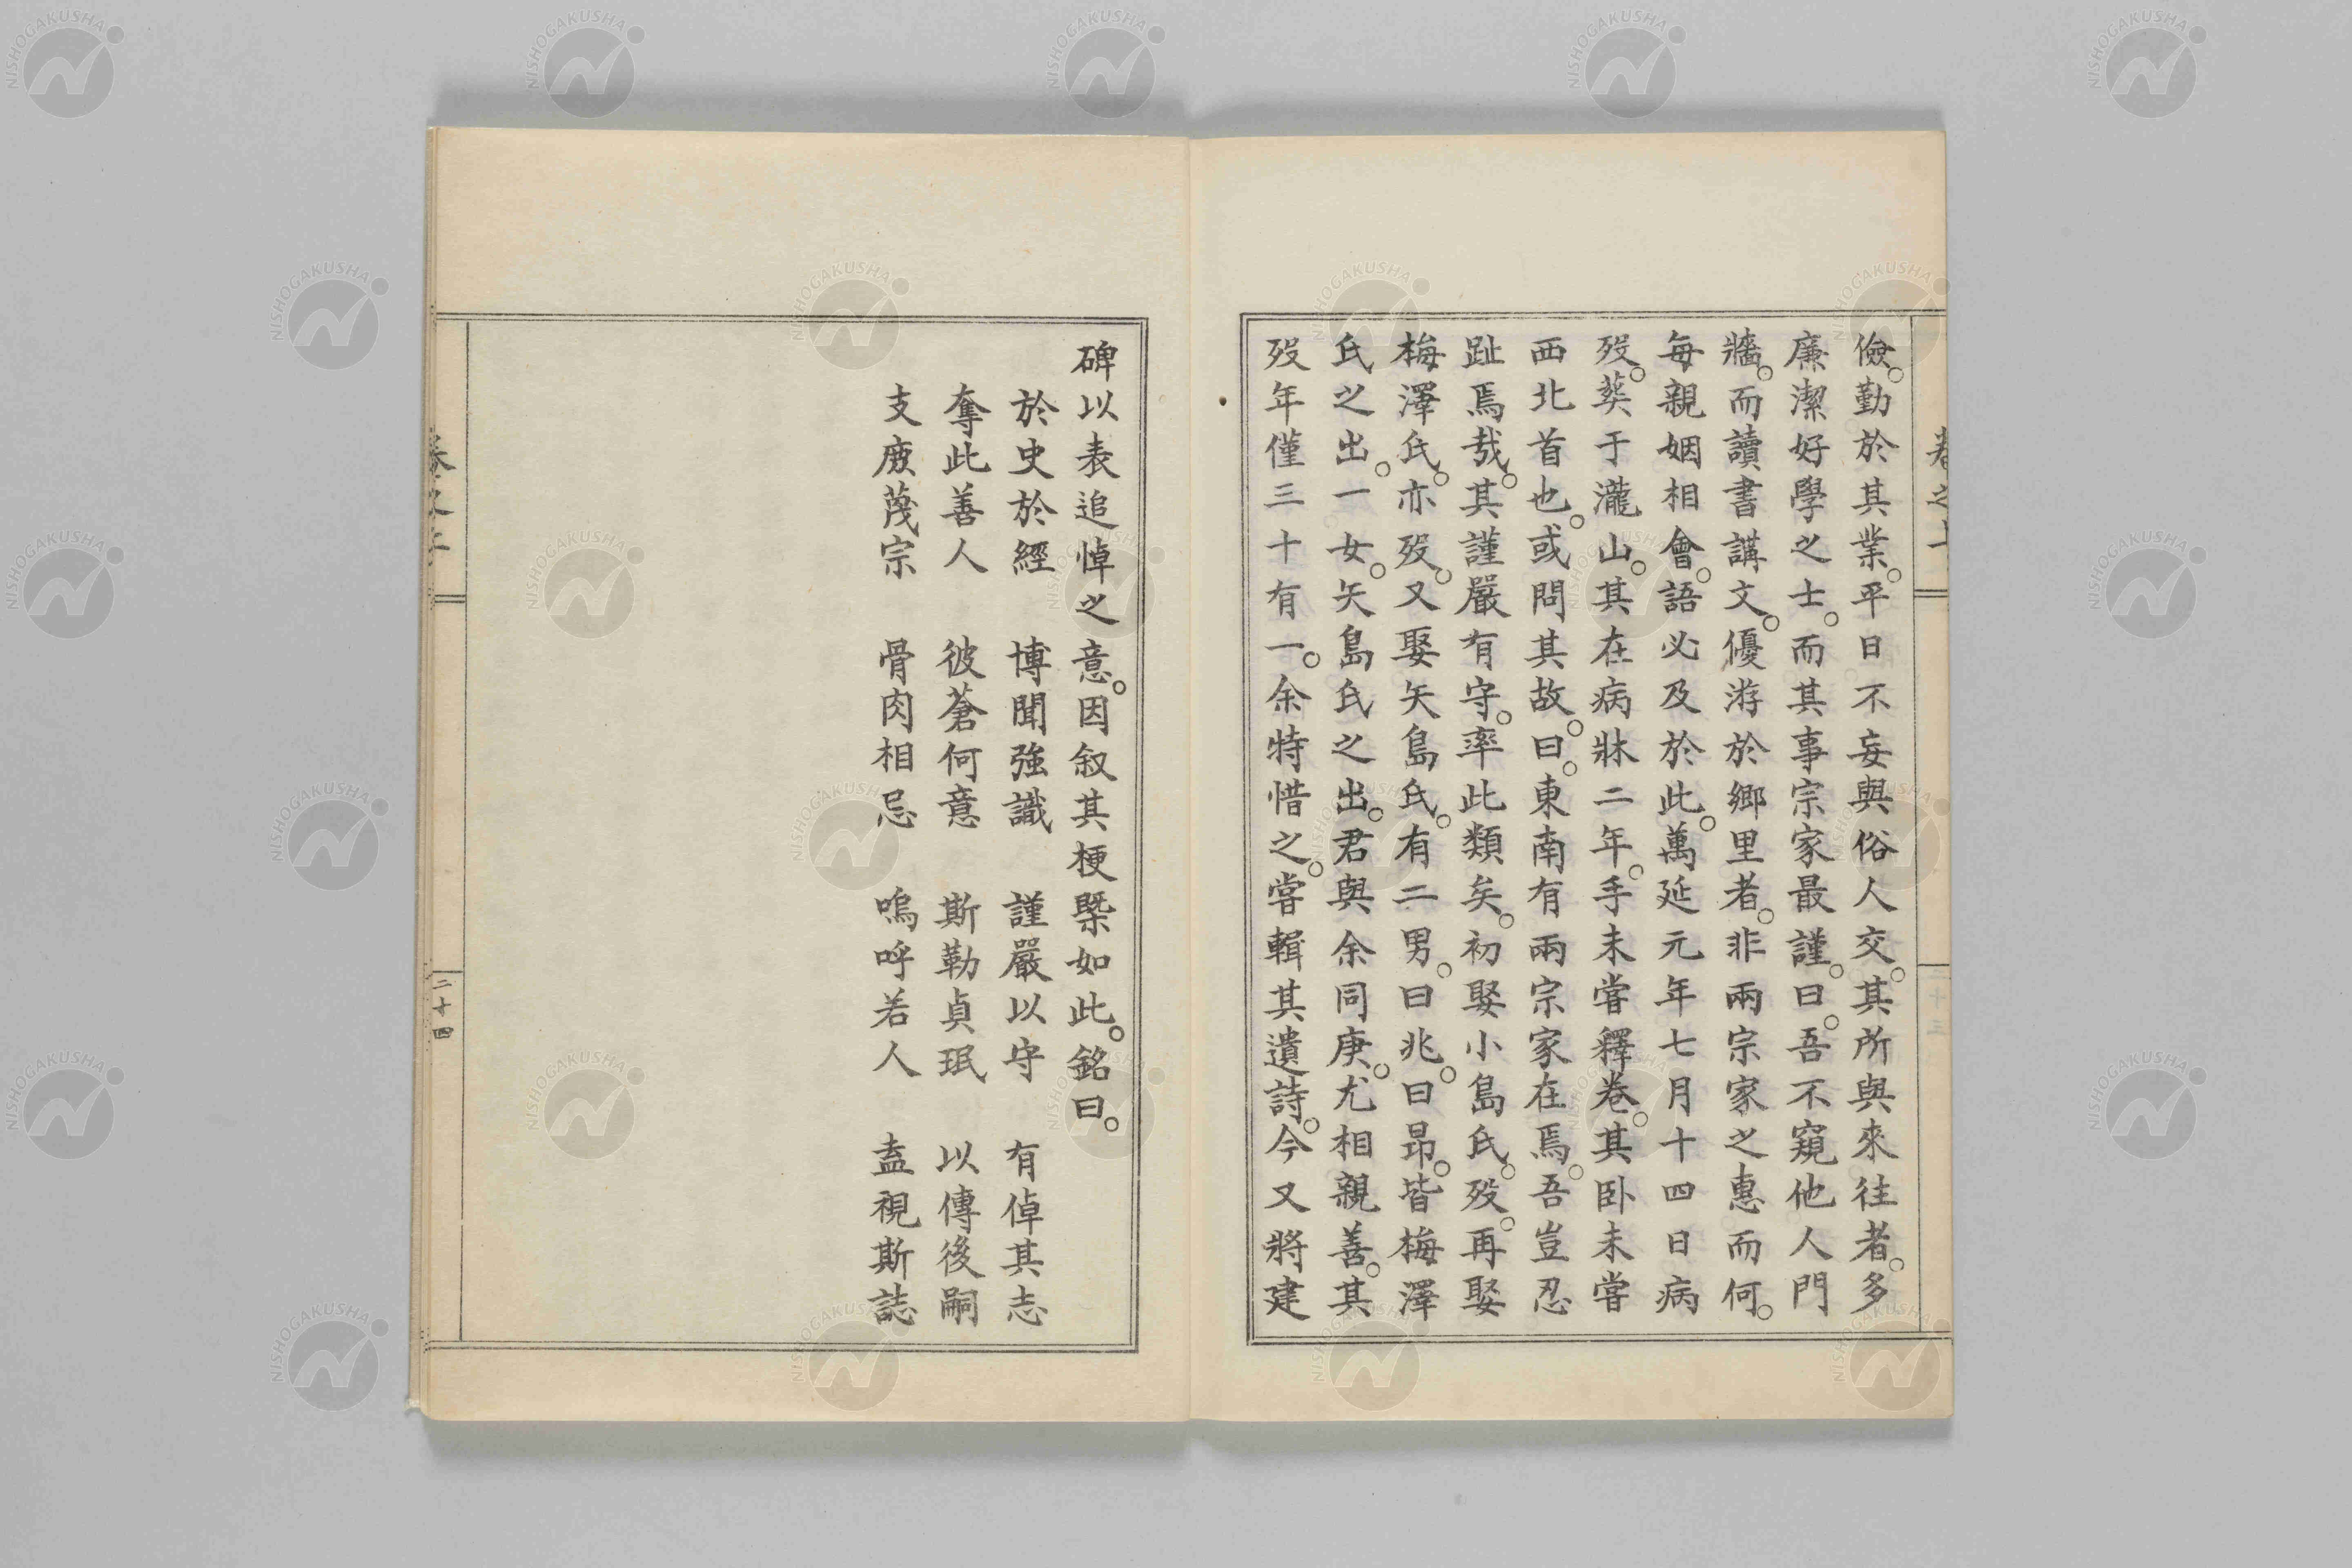 儉。勤於其業。平日不妄與俗人交。其所與來往者。多
廉潔好學之士。而其事宗家最謹。曰。吾不窺他人門
牆。而讀書講文。優游於鄉里者。非兩宗家之惠而何。
每親姻相會。語必及於此。萬延元年七月十四日病
歿。葬于瀧山。其在病牀二年。手未嘗釋卷。其卧未嘗
西北首也。或問其故。曰。東南有兩宗家在焉。吾豈忍
趾焉哉。其謹嚴有守。率此類矣。初娶小島氏。歿。再娶
梅澤氏。亦歿。又娶矢島氏。有二男。曰兆。曰昻。皆梅澤
氏之出。一女。矢島氏之出。君與余同庚。尤相親善。其
歿年僅三十有一。余特惜之。嘗輯其遺詩。今又將建
碑以表追悼之意。因叙其梗槩如此。銘曰。
於史於經 博聞強識 謹嚴以守 有倬其志
奪此善人 彼蒼何意 斯勒貞珉 以傳後嗣
支庻蔑宗 骨肉相忌 嗚呼若人 盍視斯誌
二十四
NISHOGAKUSHA